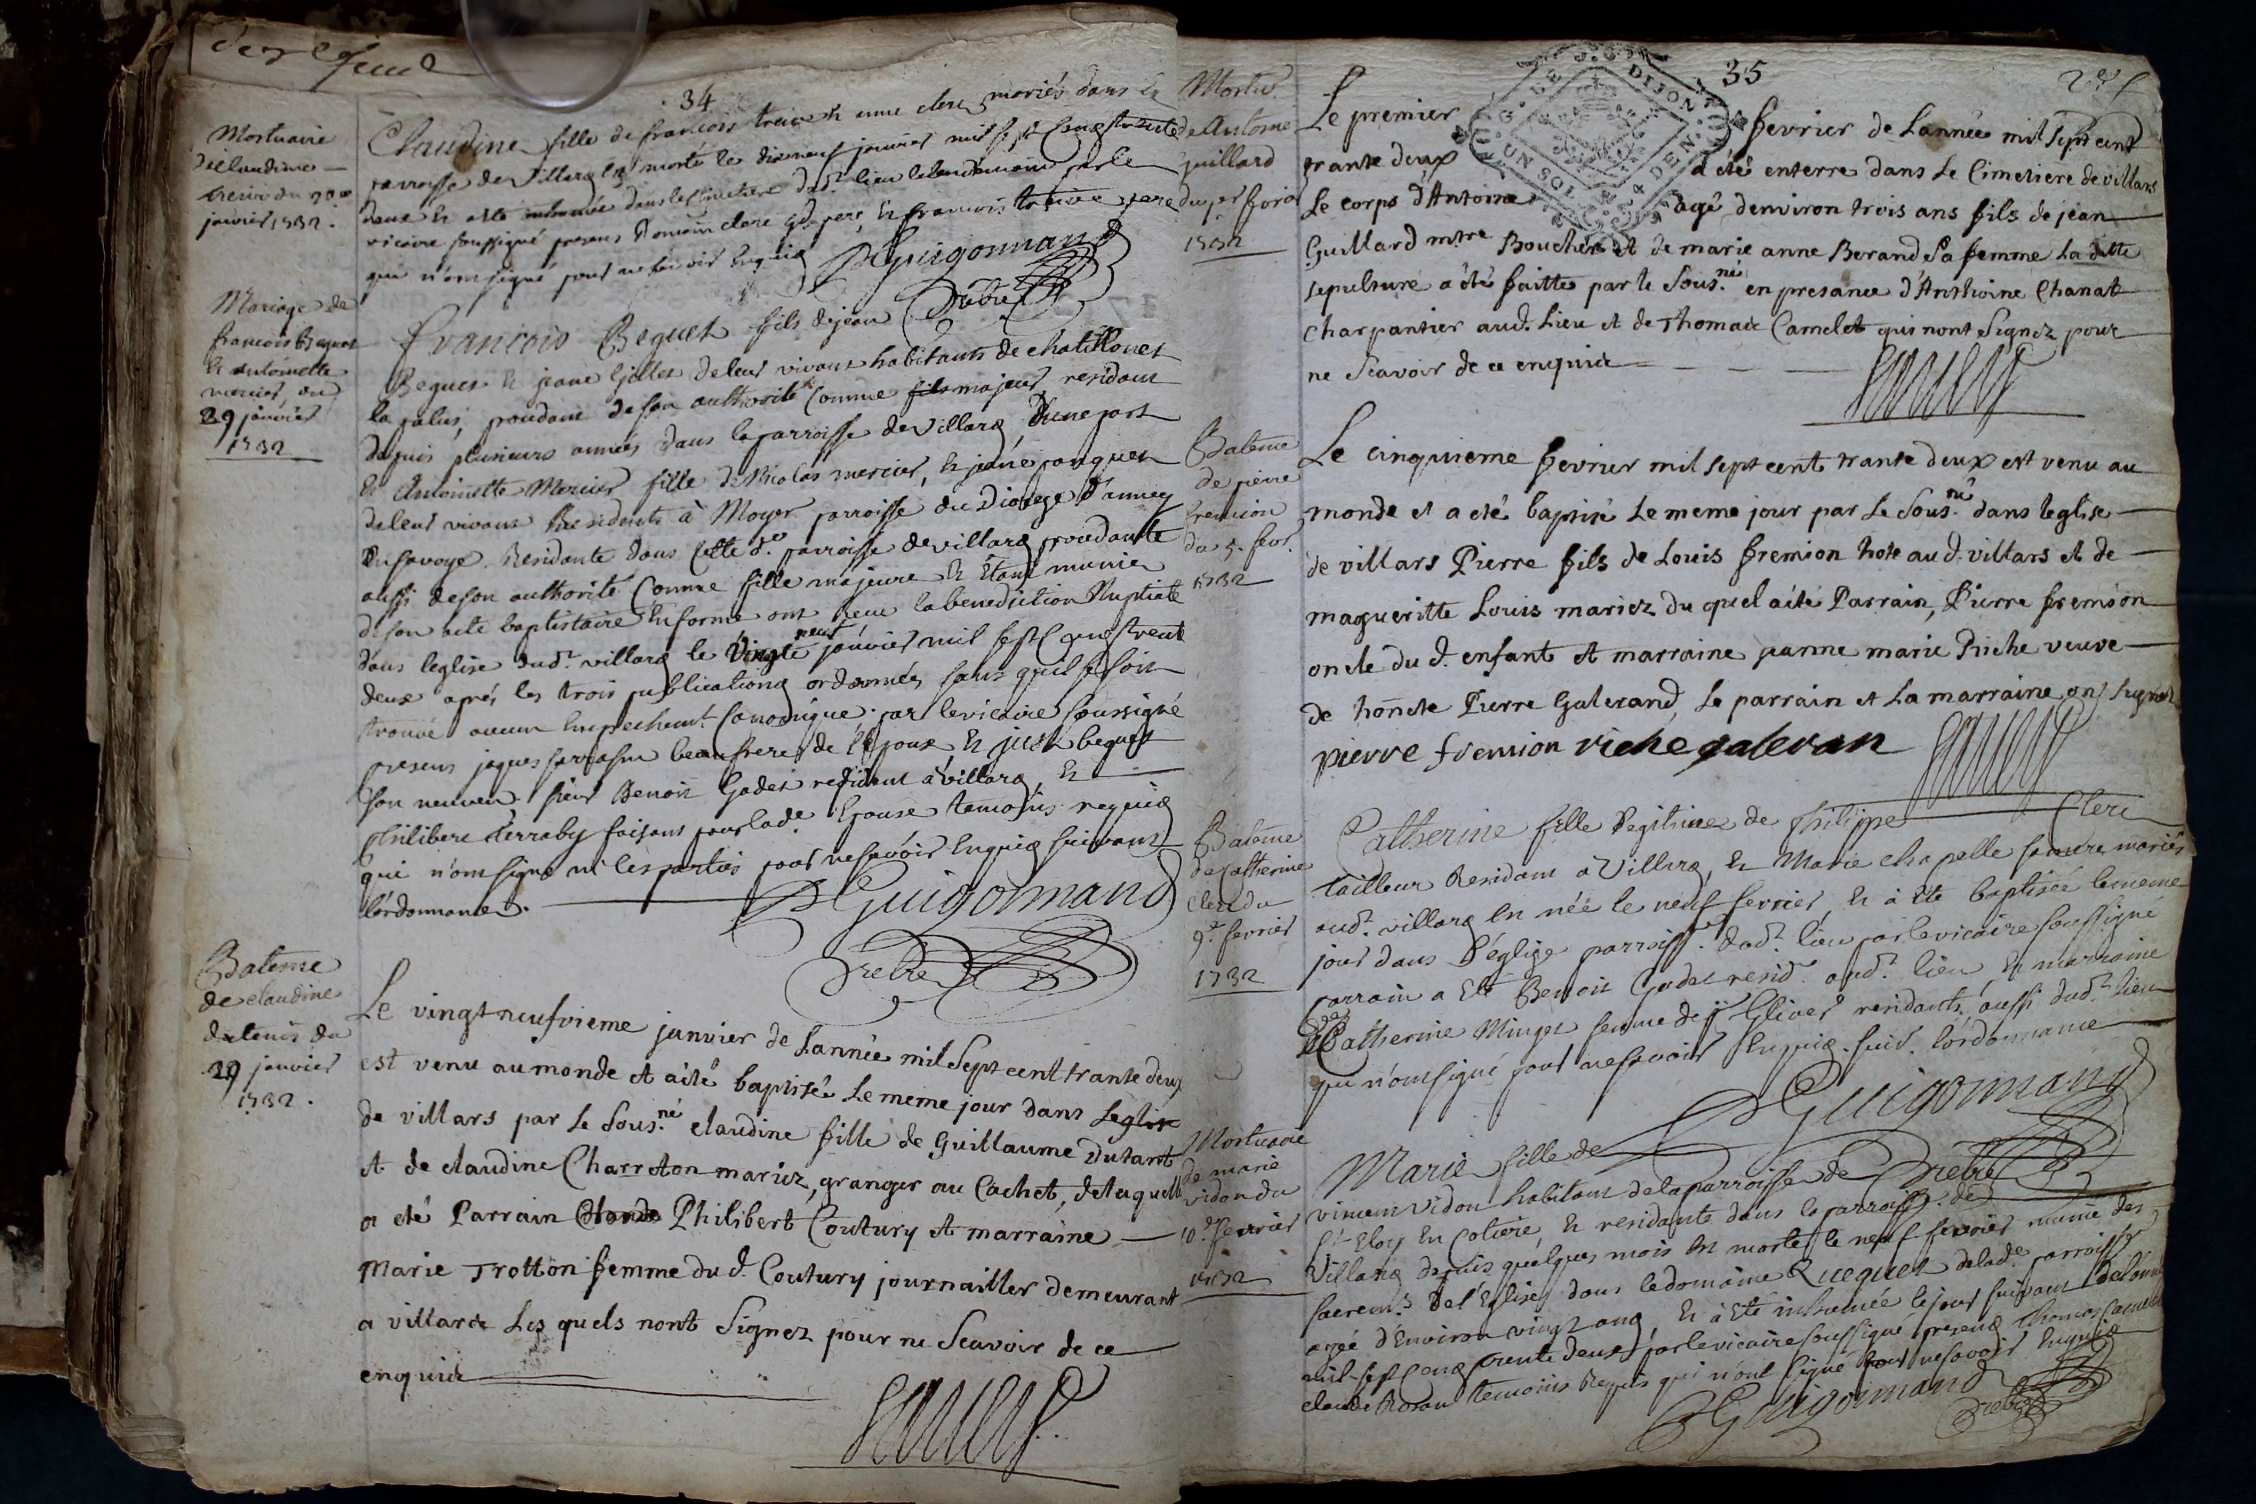 34
Mortuaire
de claudine
treive du 20e
janvier 1732.
Claudine fille de francois treive et anne clere mariés dans la
parroisse de Villars est morte le dixneuf janvier mil sept cens trente
deux et a été inhumée dans le Cimetiere dud. lieu le lendemain par le
vicaire soussigné presens Romain clere gd. pere, et francois treive pere
qui n'ont signé pour ne sçavoir enquis
Guigonnand
Prêtre
Mariage de
francois Beguet
et antoinette
mercier du
29 janvier
1732
francois Beguet fils de jean
Beguet et jeane Gillet de leur vivant habitants de chatillonet
la palus, proudant de son authorité Comme fils majeur, residant
depuis plusieurs années dans la parroisse de Villars, d'une part
et Antoinette Mercier fille de Nicolas mercier, et jeane
de leur vivant Residents à Moyer parroisse du Dioceze d'annecy
en savoye. Residante dans cette de. parroisse de villars proudante
aussi de son authorité Comme fille majeure et étant munie
de son acte baptistaire en forme ont receu la benediction Nuptiale
dans l'eglise dud. villars le vingt neuf janvier mil sept cens trente
deux aprés les trois publications ordonnées sans qu'il se soit
trouvé aucun Empechement Canonique. par le vicaire soussigné
presens jaques sarrasin beaufrere de l'époux et just beguet
son neuveu. sieur Benoit Godet residant à villars, et
philibert terraby faisans pour lade. Epouse temoins requis
qui n'ont signé ni les parties pour ne sçavoir enquis suivant
l'ordonnance.
Guigonnand
Prêtre
Bateme
de claudine
dutemis du
29 janvier
1732.
Le vingt neufvieme janvier de Lannée mil Sept cent trante deux
est venu au monde et a été baptisé Le meme jour dans Leglise
de villars par Le Sous.né claudine fille de Guillaume Dutant
et de claudine Charreton mariez, granger au Cachet, de laquelle
a eté Parrain Philibert Coutury et marraine
Marie Trotton femme du d. Coutury journailler demeurant
a villars Les quels nont Signez pour ne Scavoir de ce
enquis
35
Mortu.
de Antoine
guillard
du per fevrier
1732
Le premier fevrier de Lannée mil sept cent
trante deux a été enterre dans Le Cimetiere de villars
Le corps d'Antoine agé denviron trois ans fils de jean
Guillard mtre Boucher et de marie anne Berand Sa femme La ditte
sepulture a été faitte par le Sous.né en presance d'Anthoine Chanat
Charpantier aud. Lieu et de Thomas Camelet qui nont Signez pour
ne Scavoir de ce enquis
Bateme
de pierre
fremion
du 5. fevr.
1732
Le cinquieme fevrier mil sept cent trante deux est venu au
monde et a eté baptisé Le meme jour par Le Sous.né dans leglise
de villars Pierre fils de Louis fremion hote au d. villars et de
magueritte Louis mariez du quel a eté Parrain, Pierre fremion
oncle du d. enfant et marraine jeanne marie Riche veuve
de honete Pierre Galerand, Le parrain et La marraine ont signez
pierre fremion riche galeran
Bateme
de Catherine
clere du
9e. fevrier
1732
Catherine fille legitime de philippe Clere
tailleur Residant à Villars, et Marie chapelle sa femme mariés
aud. villars est née le neuf fevrier, et à été baptisée le meme
jour dans l'église parroiss. dud. lieu par le vicaire soussigné
parrain a été Benoit Godet resid. aud. lieu et marraine
Catherine Minget femme de sr Gliver residants aussi dud. lieu
qui n'ont signé pour ne sçavoir Enquis. suiv. l'ordonnance
Guigonnand
Prêtre
Mortuaire
de marie
vidon du
10e. fevrier
1732
Marie fille de
vincent vidon habitant de la parroisse de
St Eloy en Cotiere, et residante dans la parroisse de
Villars depuis quelques mois est morte le neuf fevrier munie des
sacrem.s de l'Eglise dans le domaine Ruequet de lade. parroisse
agée d'Environ vingt ans, et à été inhumée le jour suivant
mil-sept cens trente deux par le vicaire soussigné presens Thomas Camelet
claude Rozan temoins Requis qui n'ont signé pour ne sçavoir Enquis
Guigonnand
Prêtre